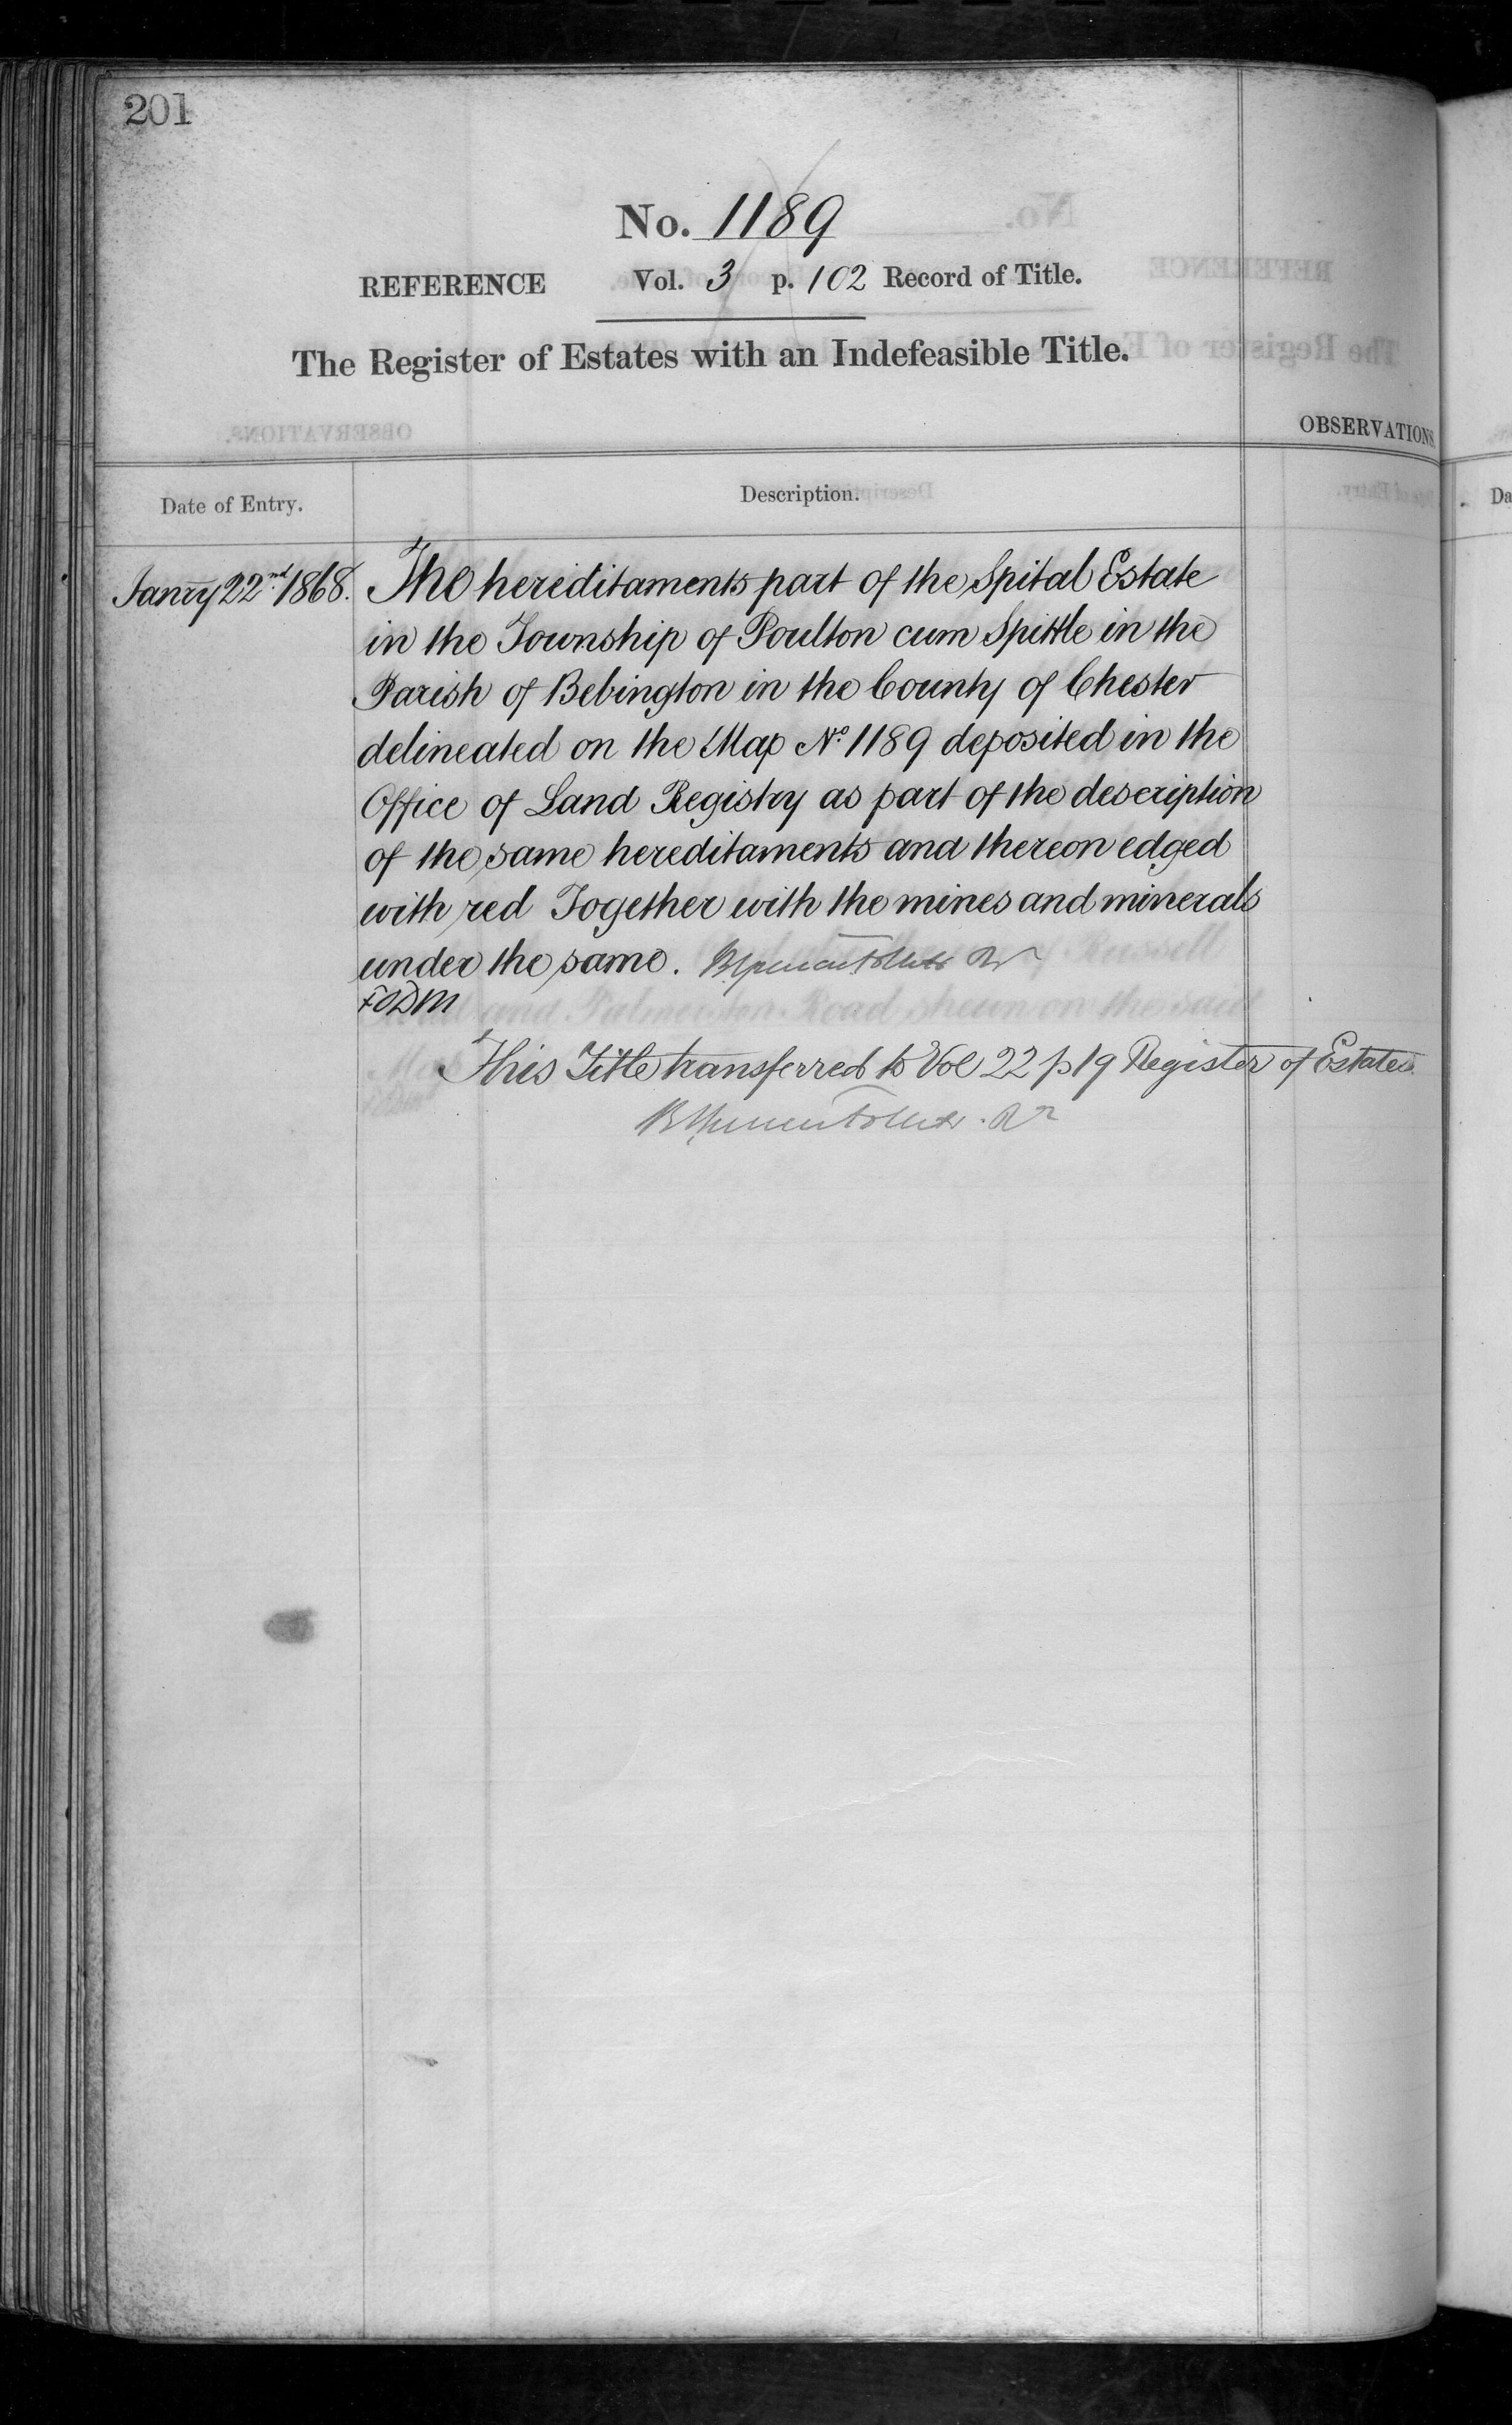 201
No. 1189
REFERENCE Vol. 3 p. 102 Record of Title.
The Register of Estates with an Indefeasible Title.
OBSERVATIONS.
Date of Entry. Description.
Janry 22nd 1868. The hereditaments part of the Spital Estate
in the Township of Poulton cum Spittle in the
Parish of Bebington in the County of Chester
delineated on the Map No. 1189 deposited in the
Office of Land Registry as part of the description
of the same hereditaments and thereon edged
with red Together with the mines and minerals
under the same.
This Title transferred to Vol 22 p 19 Register of Estates.